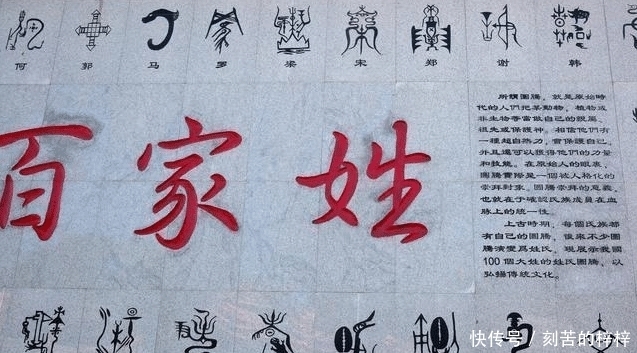 何 郭 马 罗 梁 宋 郑 谢 韩
百家姓
所謂圖騰，就是原始時
代的人們把某動物，植物或
非生物等當做自己的親屬、
祖先或保護神。相信他們有
一種超自然力，會保護自己，
并且還可以獲得他們的力量
和技能。在原始人的眼裏，
圖騰實際是一個被人格化的
崇拜對象。圖騰崇拜的意義，
也就在于確認氏族成員在血
脉上的統一性。
上古時期，每個氏族都
有自己的圖騰，後來不少圖
騰演變爲姓氏，現展示我國
100個大姓的姓氏圖騰，以
弘揚傳統文化。
快传号 / 刻苦的梓梓